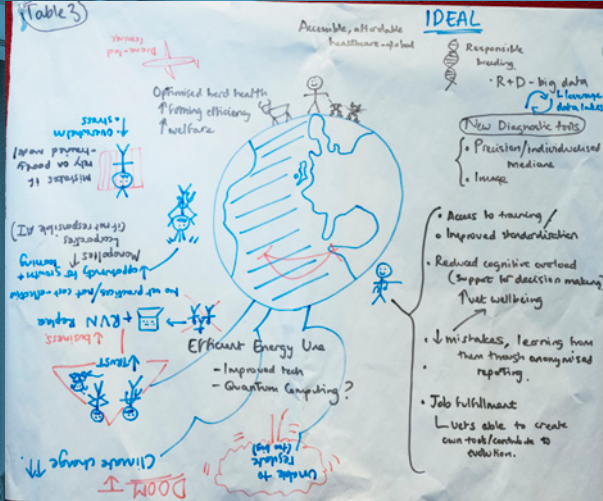 Table 3
IDEAL
Accessible, affordable
healthcare - global
Responsible
breeding
• R+D - big data
Leverage
data lakes
New Diagnostic tools
• Precision/individualised
medicine
• Image
Optimised herd health
↑ farming efficiency
↑ welfare
• Access to training /
• Improved standardisation
• Reduced cognitive overload
(support for decision making)
↑ vet wellbeing
• ↓ mistakes, learning from
them through anonymised
reporting.
• Job fulfillment
↳ vets able to create
own tools/contribute to
evolution.
Efficient Energy Use
- Improved tech
- Quantum Computing?
DOOM
Climate change ↑↑
Unable to
regulate
(too big)
↓ TRUST
↓ business
+ RVN Replace
no vet practices/not cost-effective
↓ opportunity for growth +
learning
Monopolies ↑
Corporates
(if not responsible AI)
mistakes if
rely on poorly
-trained model
↑ overwhelm
↑ stress